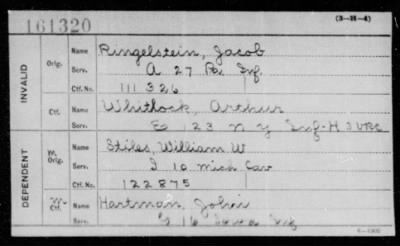 161320
(3-H-4)
INVALID
Orig. Name Ringelstein, Jacob
Serv. A 27 Pa. Inf.
Ctf. No. 111326
Ctf. Name Whitlock, Arthur
Serv. E 123 N Y Inf - H 3 VRC
DEPENDENT
W. Orig. Name Stiles, William W
Serv. I 10 Mich Cav
Ctf. No. 122875
Ctf. Name Hartman, John
Serv. G 16 Iowa Inf